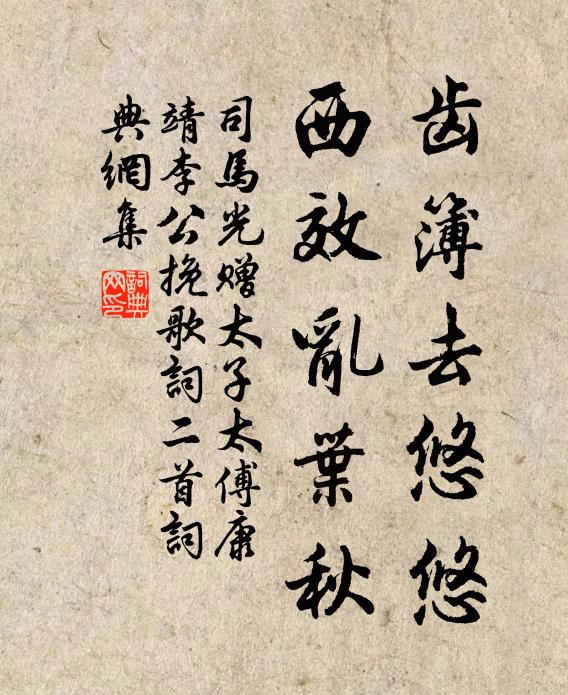 齿簿去悠悠
西效亂葉秋
司馬光赠太子太傅康
靖李公挽歌詞二首詞
典網集
詞典
网印